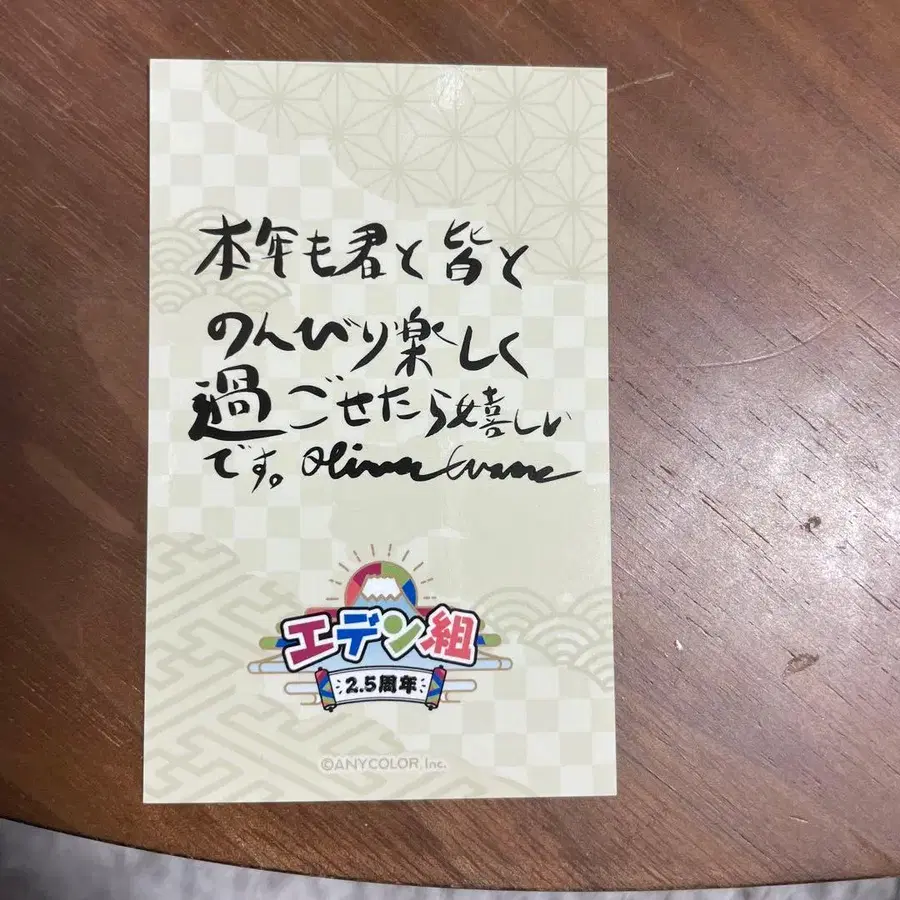 本年も君と皆と
のんびり楽しく
過ごせたら嬉しい
です。Oliver Evans
エデン組
2.5周年
©ANYCOLOR, Inc.